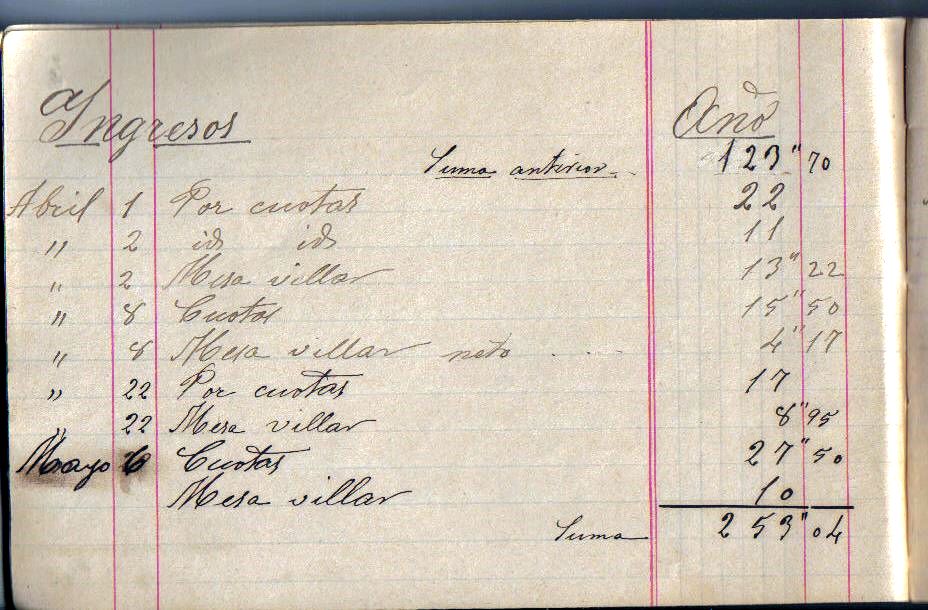 Ingresos Año
Suma anterior 123" 70
Abril 1 Por cuotas 22
" 2 id id 11
" 2 Mesa villar 13" 22
" 8 Cuotas 15" 50
" 8 Mesa villar neto .... 4" 17
" 22 Por cuotas 17
" 22 Mesa villar 8" 95
Mayo 6 Cuotas 27" 50
Mesa villar 10
Suma 253" 04